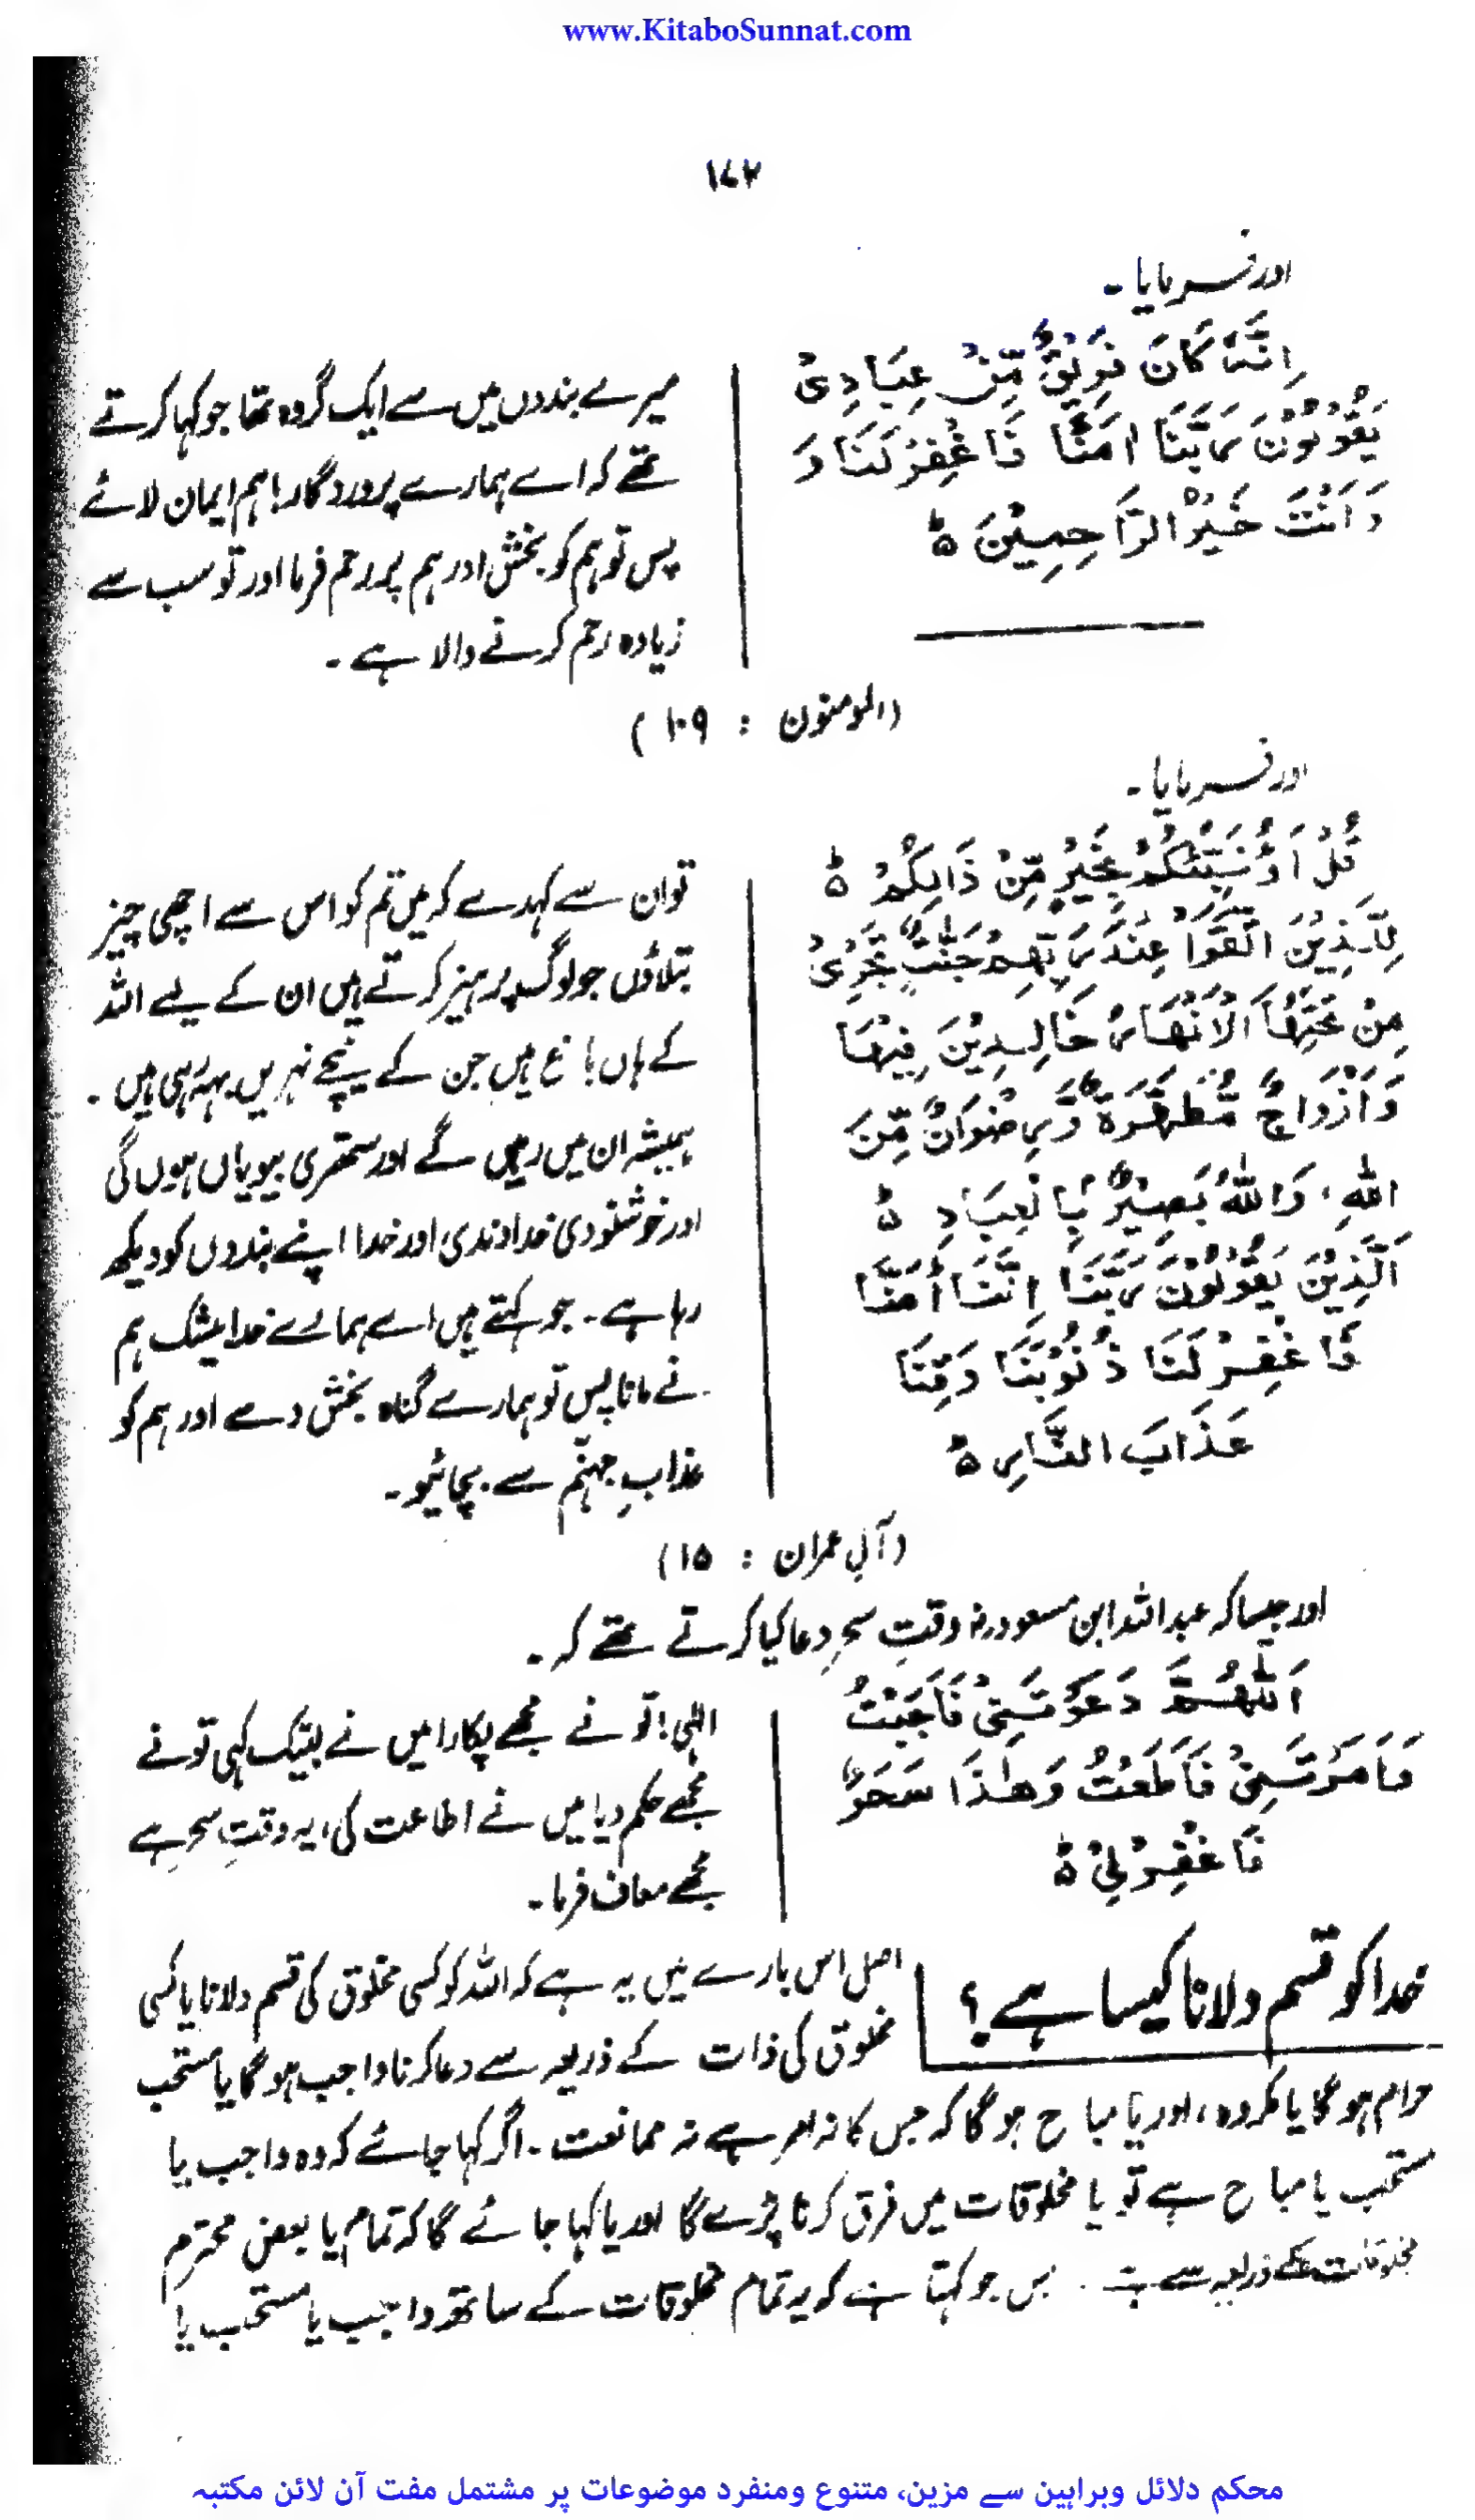 www.KitaboSunnat.com
۱۷۲
اور فرمایا۔
اِنَّهٗ كَانَ فَرِيْقٌ مِّنْ عِبَادِىْ
يَقُوْلُوْنَ رَبَّنَا اٰمَنَّا فَاغْفِرْلَنَا وَ
وَاَنْتَ خَيْرُ الرَّاحِمِيْنَ ۵
میرے بندوں میں سے ایک گروہ تھا جو کہا کرتے
تھے کہ اے ہمارے پروردگار! ہم ایمان لائے
پس تو ہم کو بخش اور ہم پر رحم فرما اور تو سب سے
زیادہ رحم کرنے والا ہے۔
(المومنون : ۱۰۹)
اور فرمایا۔
قُلْ اَؤُنَبِّئُكُمْ بِخَيْرٍ مِّنْ ذَالِكُمْ ۵
لِلَّذِيْنَ اتَّقَوْا عِنْدَ رَبِّهِمْ جَنّٰتٌ تَجْرِىْ
مِنْ تَحْتِهَا الْاَنْهَارُ خَالِدِيْنَ فِيْهَا
وَاَزْوَاجٌ مُّطَهَّرَةٌ وَّرِضْوَانٌ مِّنَ
اللّٰهِ، وَاللّٰهُ بَصِيْرٌ بِالْعِبَادِ ۵
اَلَّذِيْنَ يَقُوْلُوْنَ رَبَّنَا اِنَّنَا اٰمَنَّا
فَاغْفِرْلَنَا ذُنُوْبَنَا وَقِنَا
عَذَابَ النَّارِ ۵
تو ان سے کہدے کہ میں تم کو اس سے اچھی چیز
بتلاؤں جو لوگ پرہیز کرتے ہیں ان کے لیے اللہ
کے ہاں باغ ہیں جن کے نیچے نہریں بہہ رہی ہیں۔
ہمیشہ ان میں رہیں گے اور ستھری بیویاں ہوں گی
اور خوشنودی خداوندی اور خدا اپنے بندوں کو دیکھ
رہا ہے۔ جو کہتے ہیں اے ہمارے خدا بیشک ہم
نے مانا پس تو ہمارے گناہ بخش دے اور ہم کو
عذابِ جہنّم سے بچائیو۔
(آلِ عمران : ۱۵)
اور جیسا کہ عبداللہ ابن مسعودؓ وقتِ سحر دعا کیا کرتے تھے کہ۔
اَللّٰهُمَّ دَعَوْتَنِىْ فَاَجَبْتُ
وَاَمَرْتَنِىْ فَاَطَعْتُ وَهٰذَا سَحَرٌ
فَاغْفِرْلِىْ ۵
الٰہی! تو نے مجھے پکارا میں نے لبیک کہی تو نے
مجھے حکم دیا میں نے اطاعت کی، یہ وقتِ سحر ہے
مجھے معاف فرما۔
خدا کو قسم دلانا کیسا ہے؟
اصل اس بارے میں یہ ہے کہ اللہ کو کسی مخلوق کی قسم دلانا یا کسی
مخلوق کی ذات کے ذریعہ سے دعا کرنا واجب ہو گا یا مستحب
حرام ہو گا یا مکروہ، اور یا مباح ہو گا کہ جس کا نہ امر ہے نہ ممانعت۔ اگر کہا جائے کہ وہ واجب یا
مستحب یا مباح ہے تو یا مخلوقات میں فرق کرنا پڑے گا اور یا کہا جائے گا کہ تمام یا بعض محترم
مخلوقات کے ذریعہ سے ہے۔ پس جو کہتا ہے کہ یہ تمام مخلوقات کے ساتھ واجب یا مستحب یا
محکم دلائل وبراہین سے مزین، متنوع ومنفرد موضوعات پر مشتمل مفت آن لائن مکتبہ